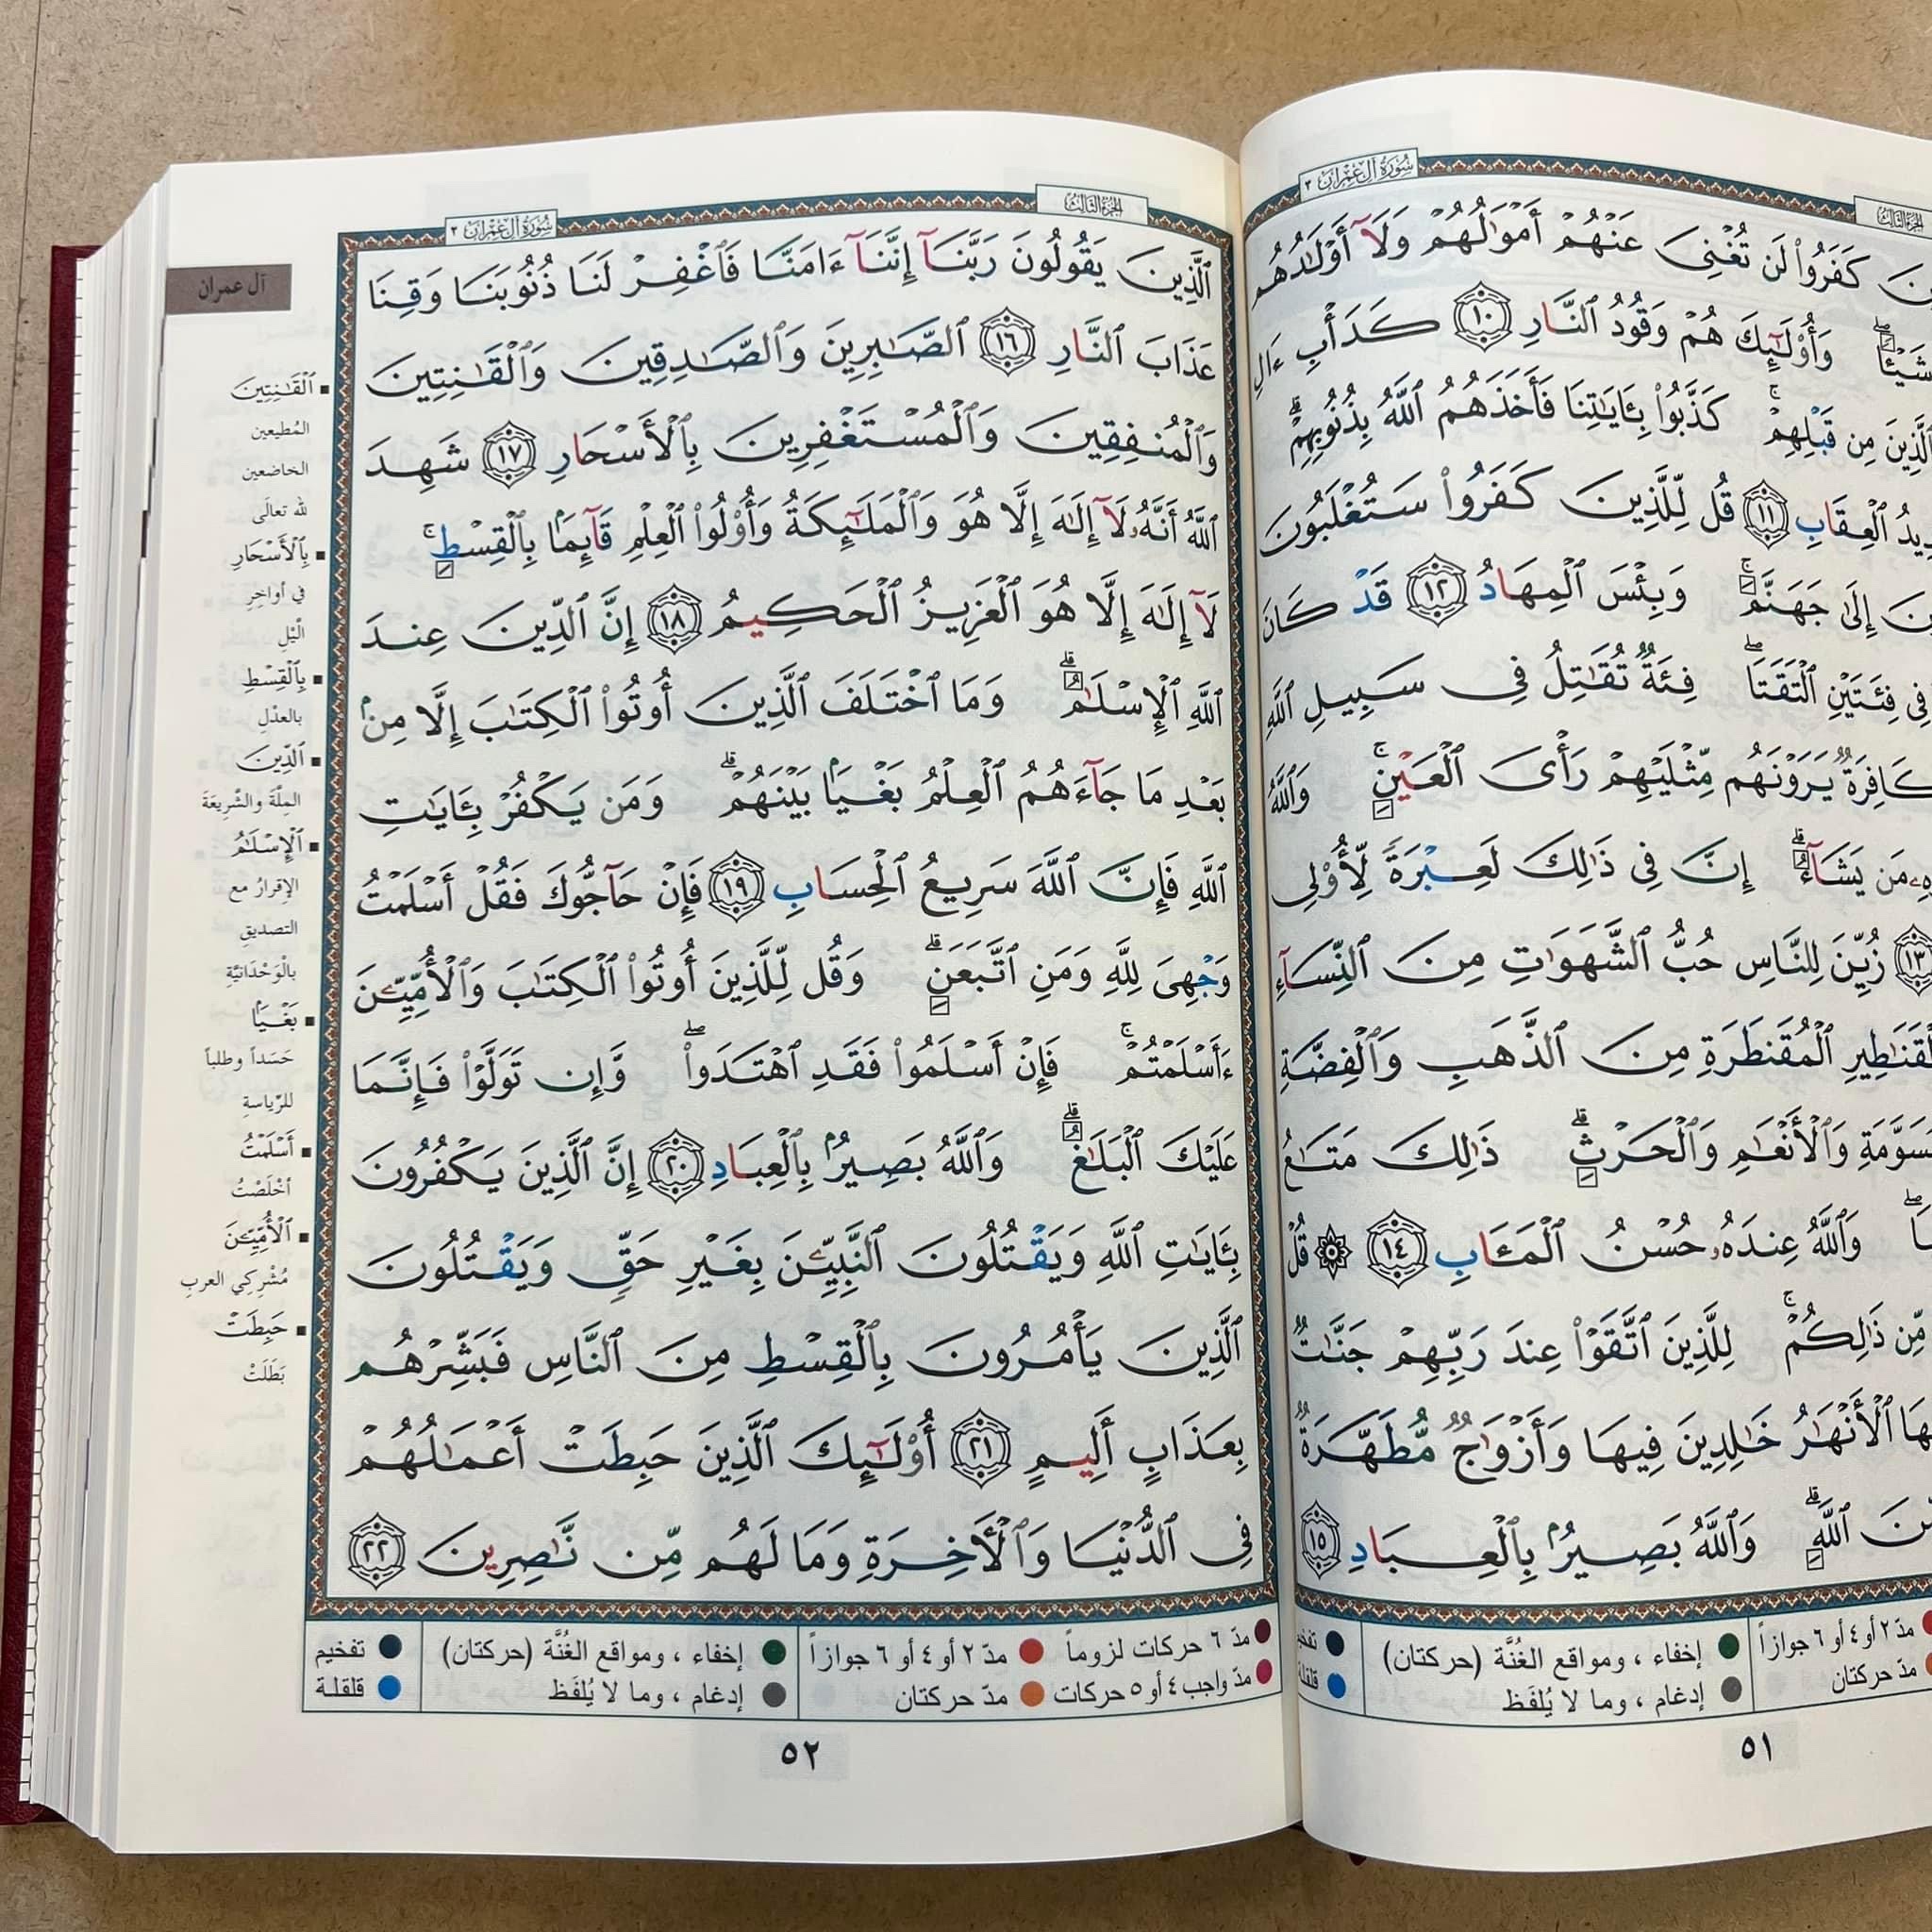 سُورَةُ آلِ عِمْرَانَ ٣
الجُزْءُ الثَّالِثُ
كَفَرُوا۟ لَن تُغْنِىَ عَنْهُمْ أَمْوَٰلُهُمْ وَلَآ أَوْلَٰدُهُم
شَيْـًٔا ۖ وَأُو۟لَٰٓئِكَ هُمْ وَقُودُ ٱلنَّارِ ١٠ كَدَأْبِ ءَالِ
ٱلَّذِينَ مِن قَبْلِهِمْ ۚ كَذَّبُوا۟ بِـَٔايَٰتِنَا فَأَخَذَهُمُ ٱللَّهُ بِذُنُوبِهِمْ ۗ
ٱلْعِقَابِ ١١ قُل لِّلَّذِينَ كَفَرُوا۟ سَتُغْلَبُونَ
إِلَىٰ جَهَنَّمَ ۚ وَبِئْسَ ٱلْمِهَادُ ١٢ قَدْ كَانَ
فِى فِئَتَيْنِ ٱلْتَقَتَا ۖ فِئَةٌ تُقَٰتِلُ فِى سَبِيلِ ٱللَّهِ
كَافِرَةٌ يَرَوْنَهُم مِّثْلَيْهِمْ رَأْىَ ٱلْعَيْنِ ۚ وَٱللَّهُ
مَن يَشَآءُ ۗ إِنَّ فِى ذَٰلِكَ لَعِبْرَةً لِّأُو۟لِى
١٣ زُيِّنَ لِلنَّاسِ حُبُّ ٱلشَّهَوَٰتِ مِنَ ٱلنِّسَآءِ
ٱلْمُقَنطَرَةِ مِنَ ٱلذَّهَبِ وَٱلْفِضَّةِ
وَٱلْأَنْعَٰمِ وَٱلْحَرْثِ ۗ ذَٰلِكَ مَتَٰعُ
وَٱللَّهُ عِندَهُۥ حُسْنُ ٱلْمَـَٔابِ ١٤ ۞ قُلْ
مِّن ذَٰلِكُمْ ۚ لِلَّذِينَ ٱتَّقَوْا۟ عِندَ رَبِّهِمْ جَنَّٰتٌ
ٱلْأَنْهَٰرُ خَٰلِدِينَ فِيهَا وَأَزْوَٰجٌ مُّطَهَّرَةٌ
ٱللَّهِ ۗ وَٱللَّهُ بَصِيرٌۢ بِٱلْعِبَادِ ١٥
مدّ ٢ أو ٤ أو ٦ جوازاً
مدّ حركتان
إخفاء ، ومواقع الغُنَّة (حركتان)
إدغام ، وما لا يُلفَظ
٥١
الجُزْءُ الثَّالِثُ
سُورَةُ آلِ عِمْرَانَ ٣
ٱلَّذِينَ يَقُولُونَ رَبَّنَآ إِنَّنَآ ءَامَنَّا فَٱغْفِرْ لَنَا ذُنُوبَنَا وَقِنَا
عَذَابَ ٱلنَّارِ ١٦ ٱلصَّٰبِرِينَ وَٱلصَّٰدِقِينَ وَٱلْقَٰنِتِينَ
وَٱلْمُنفِقِينَ وَٱلْمُسْتَغْفِرِينَ بِٱلْأَسْحَارِ ١٧ شَهِدَ
ٱللَّهُ أَنَّهُۥ لَآ إِلَٰهَ إِلَّا هُوَ وَٱلْمَلَٰٓئِكَةُ وَأُو۟لُوا۟ ٱلْعِلْمِ قَآئِمًۢا بِٱلْقِسْطِ ۚ
لَآ إِلَٰهَ إِلَّا هُوَ ٱلْعَزِيزُ ٱلْحَكِيمُ ١٨ إِنَّ ٱلدِّينَ عِندَ
ٱللَّهِ ٱلْإِسْلَٰمُ ۗ وَمَا ٱخْتَلَفَ ٱلَّذِينَ أُوتُوا۟ ٱلْكِتَٰبَ إِلَّا مِنۢ
بَعْدِ مَا جَآءَهُمُ ٱلْعِلْمُ بَغْيًۢا بَيْنَهُمْ ۗ وَمَن يَكْفُرْ بِـَٔايَٰتِ
ٱللَّهِ فَإِنَّ ٱللَّهَ سَرِيعُ ٱلْحِسَابِ ١٩ فَإِنْ حَآجُّوكَ فَقُلْ أَسْلَمْتُ
وَجْهِىَ لِلَّهِ وَمَنِ ٱتَّبَعَنِ ۗ وَقُل لِّلَّذِينَ أُوتُوا۟ ٱلْكِتَٰبَ وَٱلْأُمِّيِّـۧنَ
ءَأَسْلَمْتُمْ ۚ فَإِنْ أَسْلَمُوا۟ فَقَدِ ٱهْتَدَوا۟ ۖ وَّإِن تَوَلَّوْا۟ فَإِنَّمَا
عَلَيْكَ ٱلْبَلَٰغُ ۗ وَٱللَّهُ بَصِيرٌۢ بِٱلْعِبَادِ ٢٠ إِنَّ ٱلَّذِينَ يَكْفُرُونَ
بِـَٔايَٰتِ ٱللَّهِ وَيَقْتُلُونَ ٱلنَّبِيِّـۧنَ بِغَيْرِ حَقٍّ وَيَقْتُلُونَ
ٱلَّذِينَ يَأْمُرُونَ بِٱلْقِسْطِ مِنَ ٱلنَّاسِ فَبَشِّرْهُم
بِعَذَابٍ أَلِيمٍ ٢١ أُو۟لَٰٓئِكَ ٱلَّذِينَ حَبِطَتْ أَعْمَٰلُهُمْ
فِى ٱلدُّنْيَا وَٱلْءَاخِرَةِ وَمَا لَهُم مِّن نَّٰصِرِينَ ٢٢
آل عمران
▪ ٱلْقَٰنِتِينَ
المُطيعين
الخاضعين
لله تعالَى
▪ بِٱلْأَسْحَارِ
في أواخِرِ
الْليْلِ
▪ بِٱلْقِسْطِ
بالعدْلِ
▪ ٱلدِّينَ
المِلَّةَ والشَّرِيعَةَ
▪ ٱلْإِسْلَٰمُ
الإقرارُ مع
التصديقِ
بالْوَحْدَانيَّةِ
▪ بَغْيًۢا
حَسَداً وطلباً
للرِّياسةِ
▪ أَسْلَمْتُ
أخْلَصْتُ
▪ ٱلْأُمِّيِّـۧنَ
مُشْرِكِي العربِ
▪ حَبِطَتْ
بَطَلَتْ
مدّ ٦ حركات لزوماً
مدّ واجب ٤ أو ٥ حركات
مدّ ٢ أو ٤ أو ٦ جوازاً
مدّ حركتان
إخفاء ، ومواقع الغُنَّة (حركتان)
إدغام ، وما لا يُلفَظ
تفخيم
قلقلة
٥٢